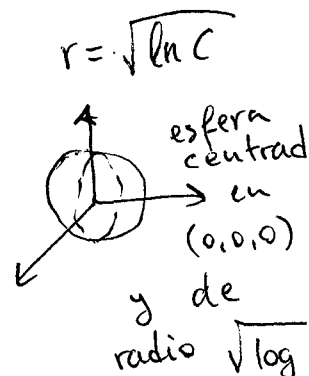 r = √ln C
esfera
centrad
en
(0,0,0)
y de
radio √log